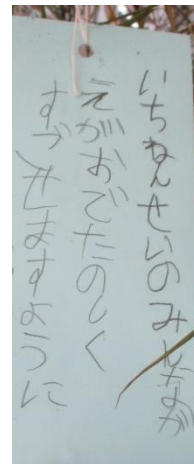 いちねんせいのみんなが
えがおでたのしく
すごせますように